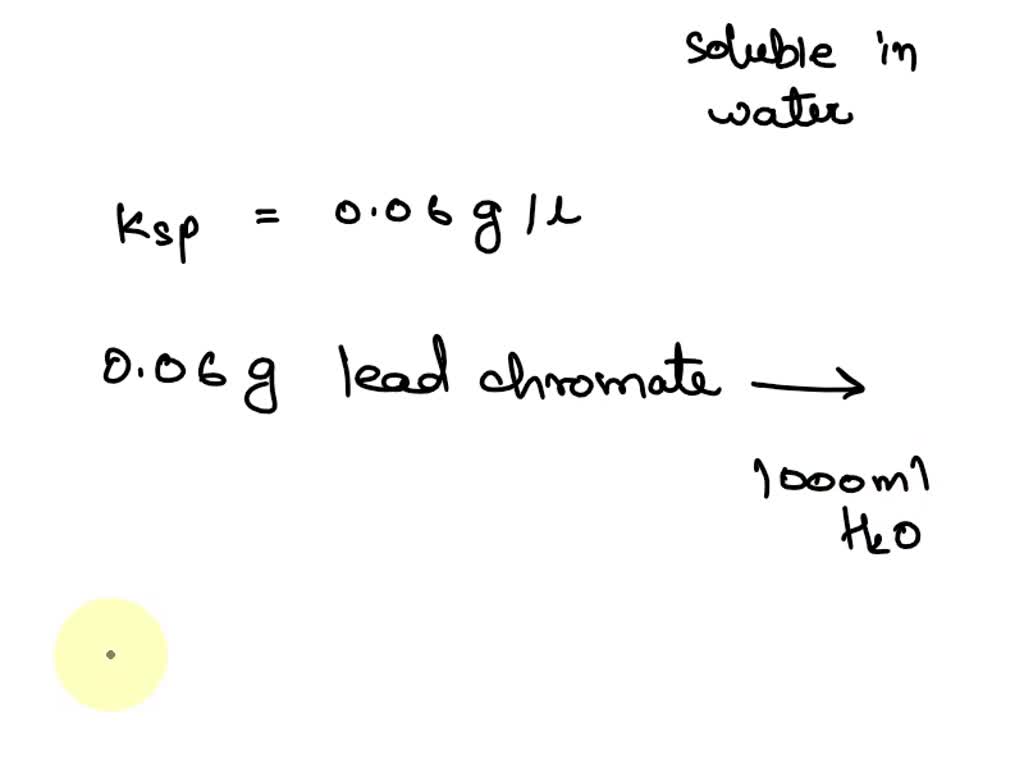 soluble in
water
Ksp = 0.06 g/l
0.06 g lead chromate →
1000ml
H2O